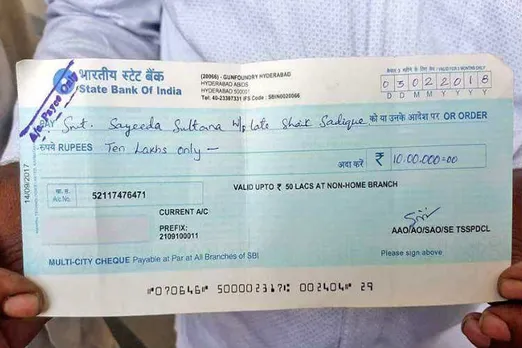 A/c Payee Only
भारतीय स्टेट बैंक
State Bank Of India
(20066) - GUNFOUNDRY HYDERABAD
HYDERABAD ABIDS
HYDERABAD 500001
Tel: 40-23387331 IFS Code : SBIN0020066
VALID FOR 3 MONTHS ONLY
03022018
D D M M Y Y Y Y
Smt. Sayeeda Sultana w/o late Shaik Sadique को या उनके आदेश पर OR ORDER
रुपये RUPEES Ten Lakhs only —
अदा करें ₹ 10,00,000=00
14/09/2017
खा. सं.
A/c No.
52117476471
VALID UPTO ₹ 50 LACS AT NON-HOME BRANCH
CURRENT A/C
PREFIX:
2109100011
AAO/AO/SAO/SE TSSPDCL
MULTI-CITY CHEQUE Payable at Par at All Branches of SBI
Please sign above
⑈070646⑈ 500002317⑆ 002404⑈ 29